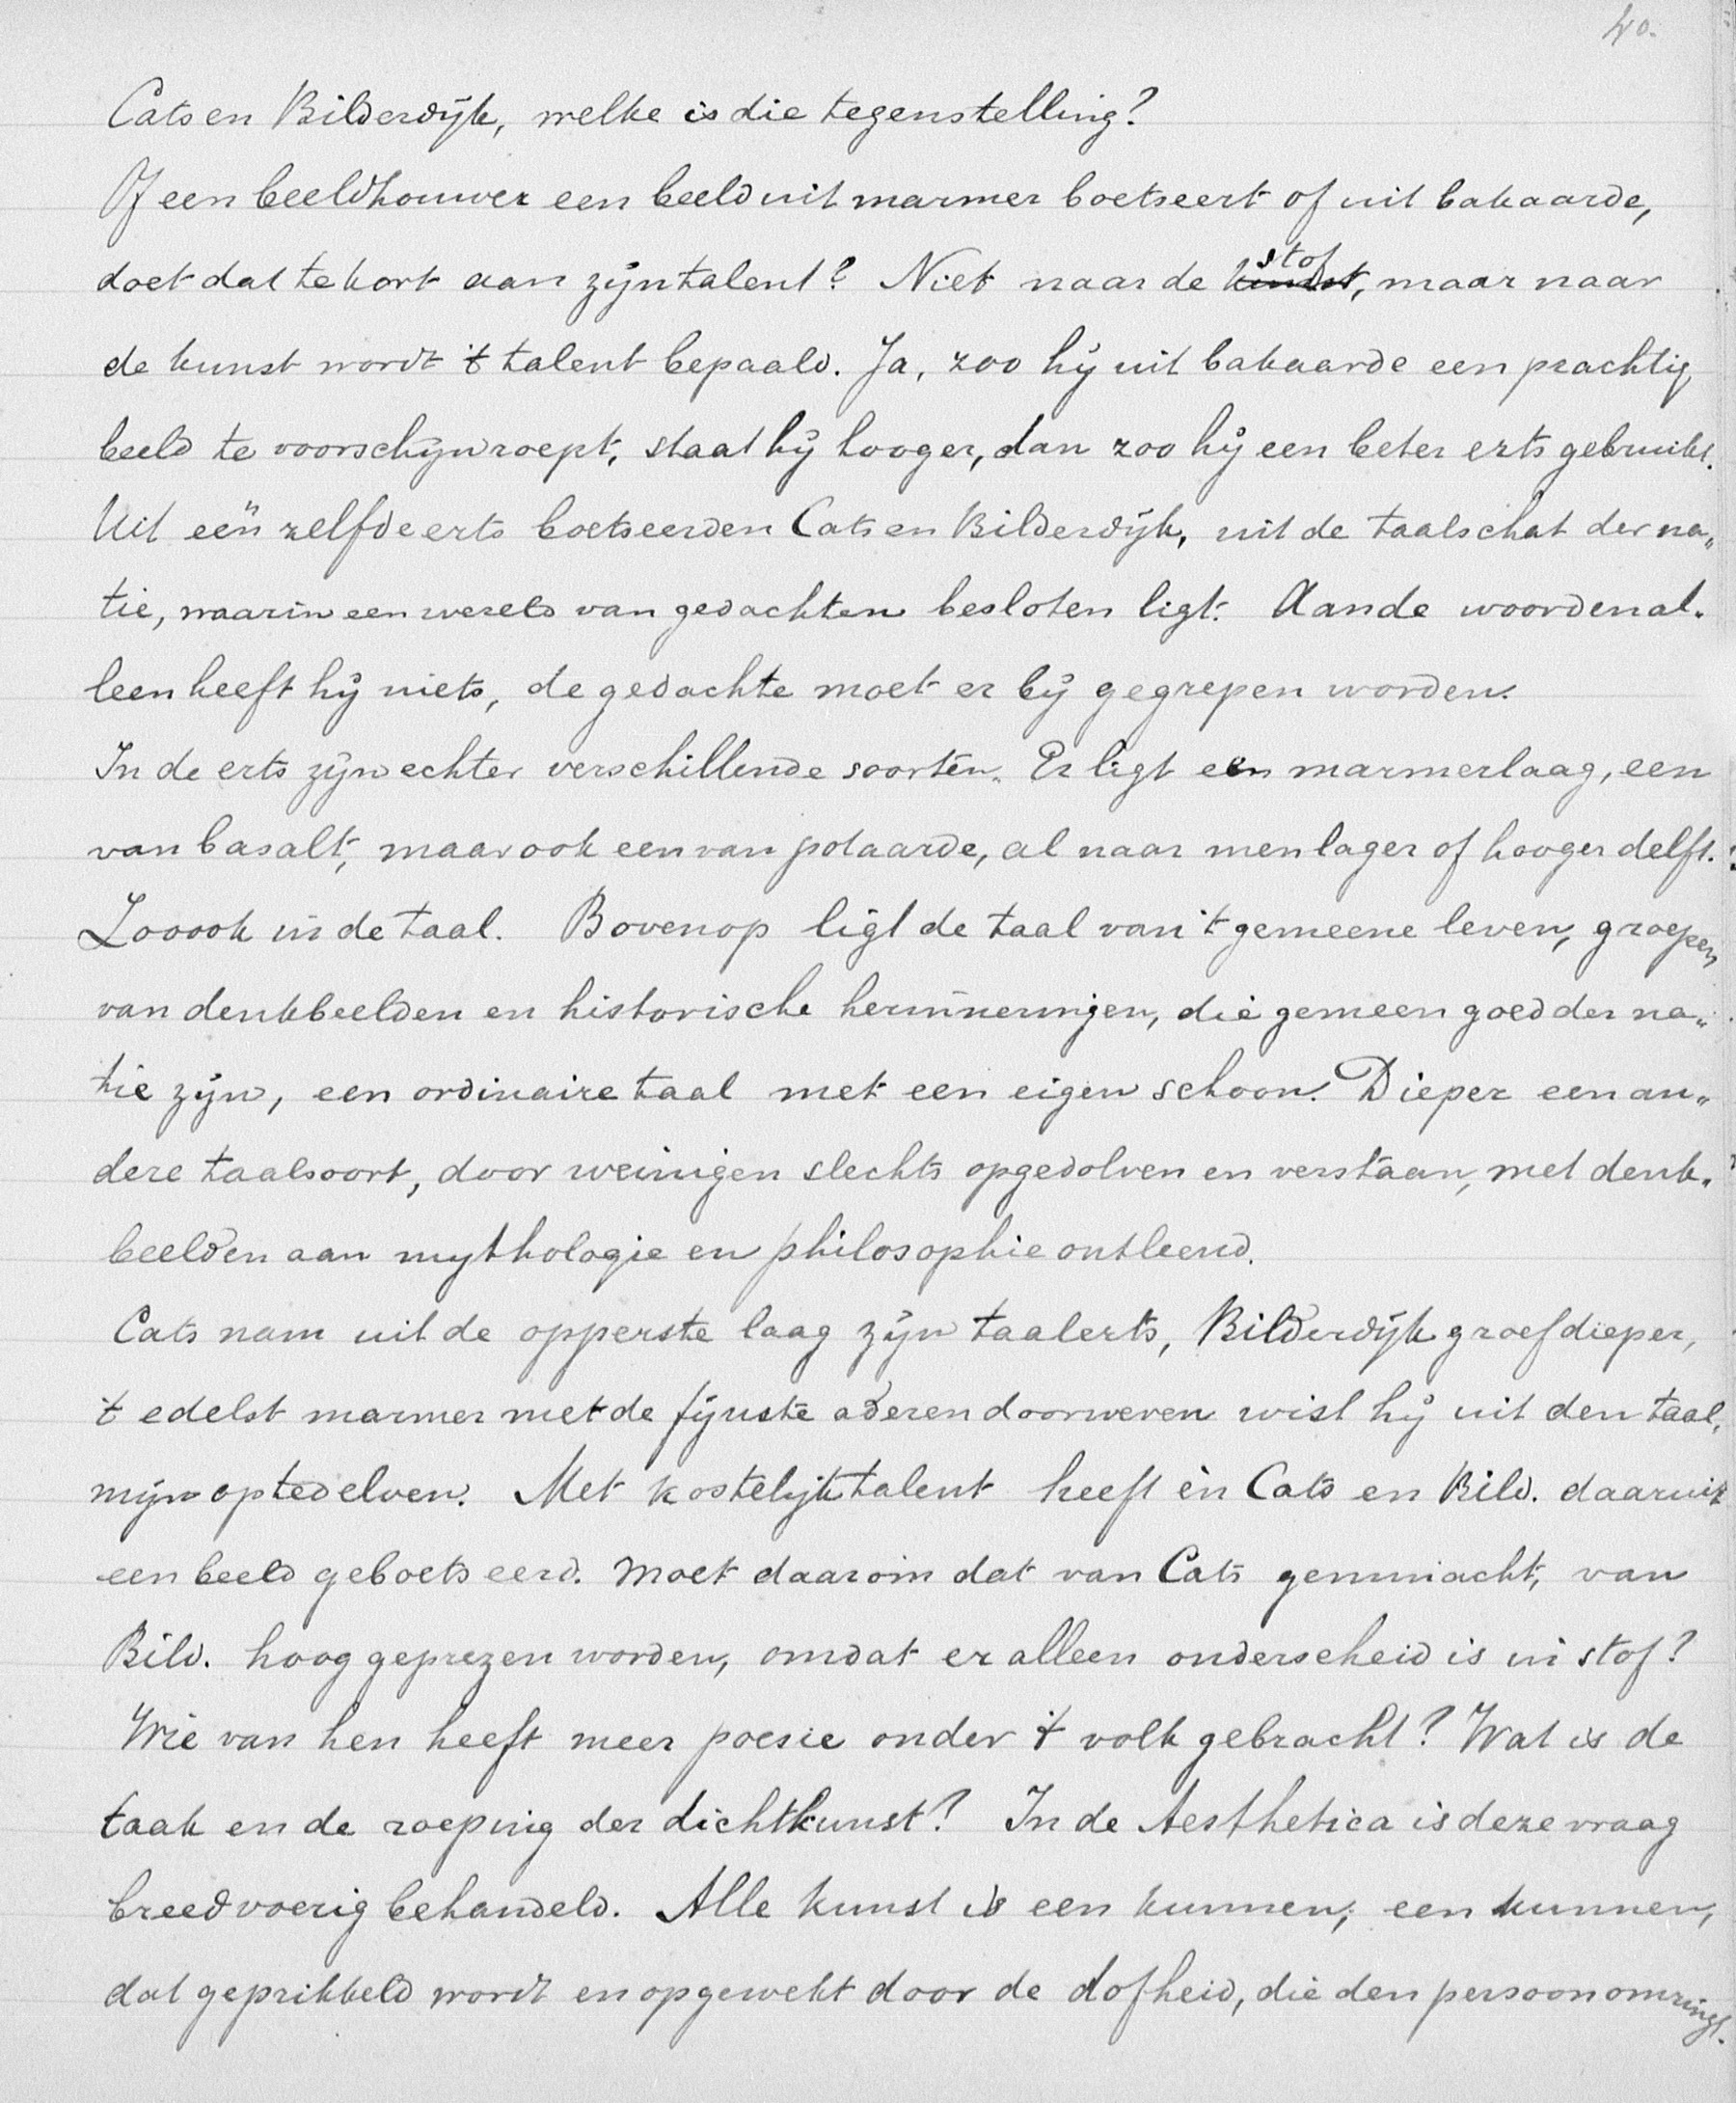 40.
Cats en Bilderdijk, welke is die tegenstelling?
Of een beeldhouwer een beeld uit marmer boetseert of uit bakaarde,
doet dat te kort aan zijn talent? Niet naar de kunst stof, maar naar
de kunst wordt 't talent bepaald. Ja, zoo hij uit bakaarde een prachtig
beeld te voorschijn roept, staat hij hooger, dan zoo hij een beter erts gebruikt.
Uit eén zelfde erts boetseerden Cats en Bilderdijk, uit de taalschat der na„
tie, waarin een wereld van gedachten besloten ligt. Aan de woorden al„
leen heeft hij niets, de gedachte moet er bij gegrepen worden.
In de erts zijn echter verschillende soorten. Er ligt een marmerlaag, een
van basalt, maar ook een van potaarde, al naar men lager of hooger delft.
Zoo ook in de taal. Bovenop ligt de taal van 't gemeene leven, groepen
van denkbeelden en historische herinneringen, die gemeen goed der na„
tie zijn, een ordinaire taal met een eigen schoon. Dieper een an„
dere taalsoort, door weinigen slechts opgedolven en verstaan, met denk„
beelden aan mythologie en philosophie ontleend.
Cats nam uit de opperste laag zijn taalerts, Bilderdijk groef dieper,
't edelst marmer met de fijnste aderen doorweven wist hij uit den taal„
mijn op te delven. Met kostelijk talent heeft èn Cats en Bild. daaruit
een beeld geboetseerd. Moet daarom dat van Cats geminacht, van
Bild. hoog geprezen worden, omdat er alleen onderscheid is in stof?
Wie van hen heeft meer poesie onder 't volk gebracht? Wat is de
taak en de roeping der dichtkunst? In de Aesthetica is deze vraag
breedvoerig behandeld. Alle kunst is een kunnen, een kunnen,
dat geprikkeld wordt en opgewekt door de dofheid, die den persoon omringt.